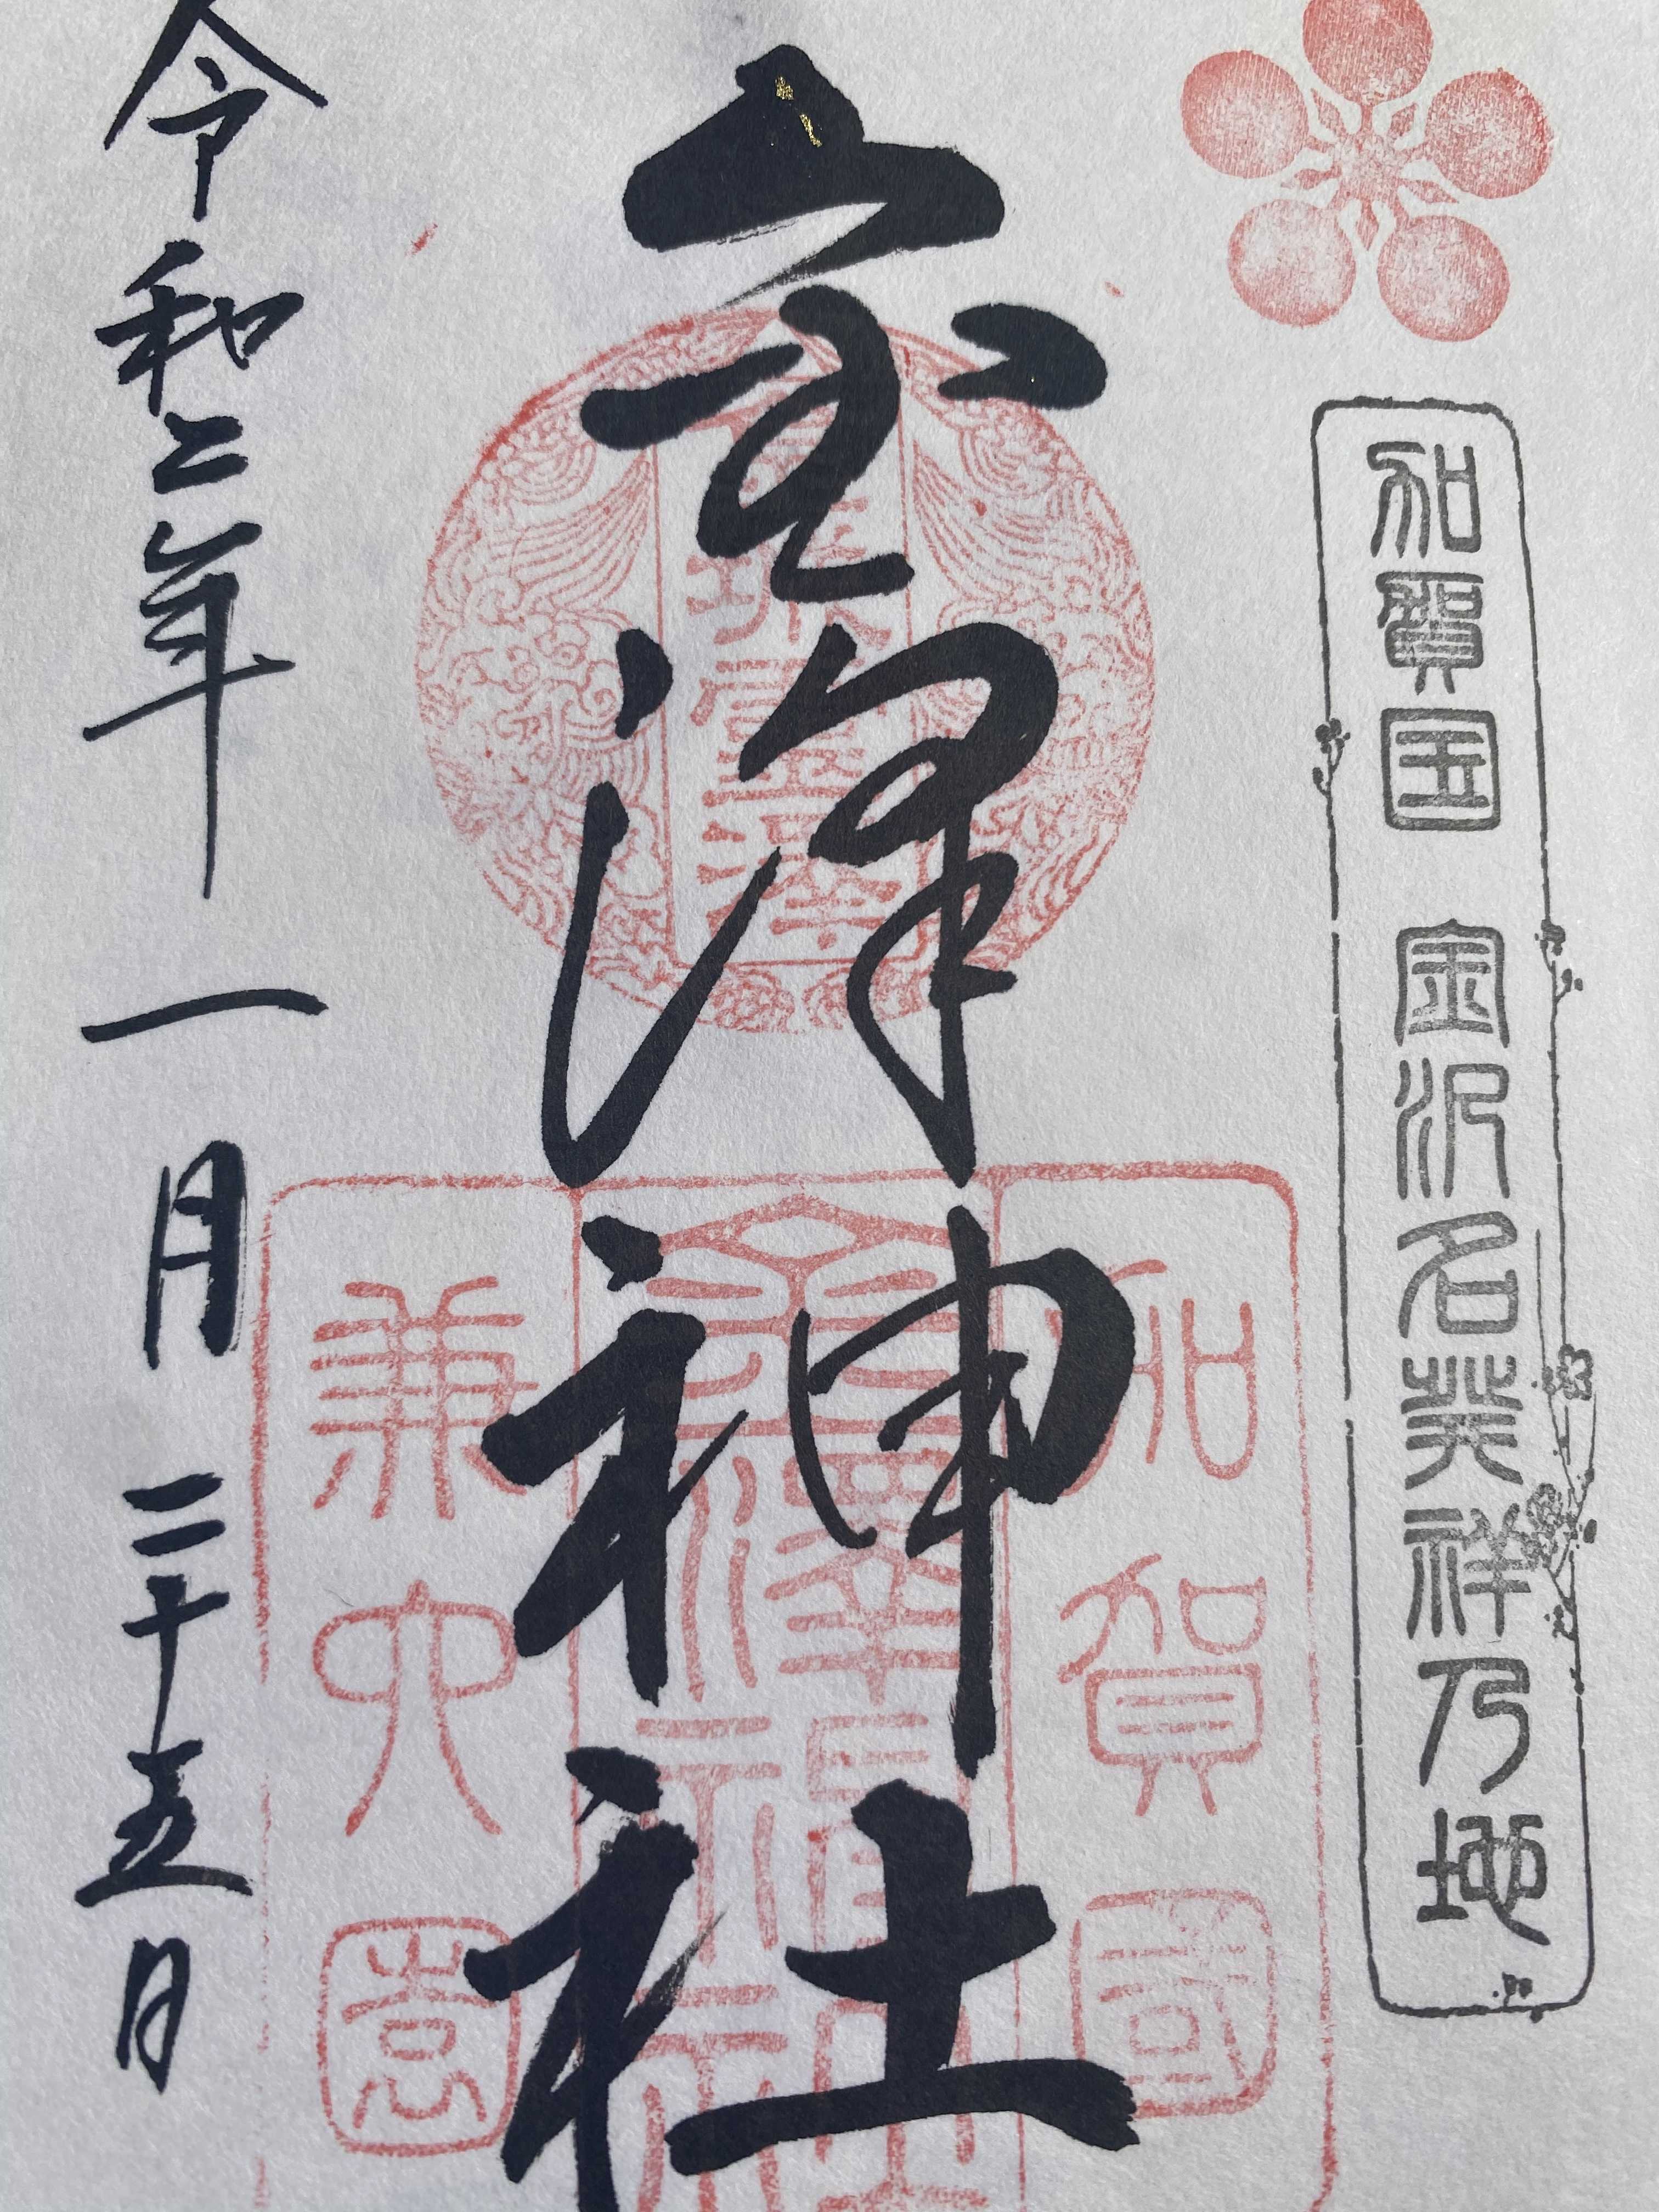 加賀国 金沢名発祥乃地
金澤神社
加賀國
金澤
兼六園
令和二年一月二十五日